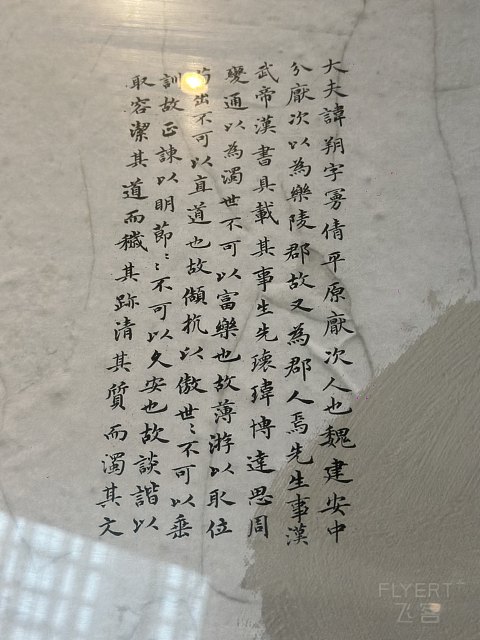 大夫諱朔字曼倩平原厭次人也魏建安中
分厭次以為樂陵郡故又為郡人焉先生事漢
武帝漢書具載其事生先瓌瑋博達思周
變通以為濁世不可以富樂也故薄游以取位
苟出不可以直道也故頡抗以傲世〻不可以垂
訓故正諫以明節〻不可以久安也故談諧以
取容潔其道而穢其跡清其質而濁其文
FLYERT
飞客